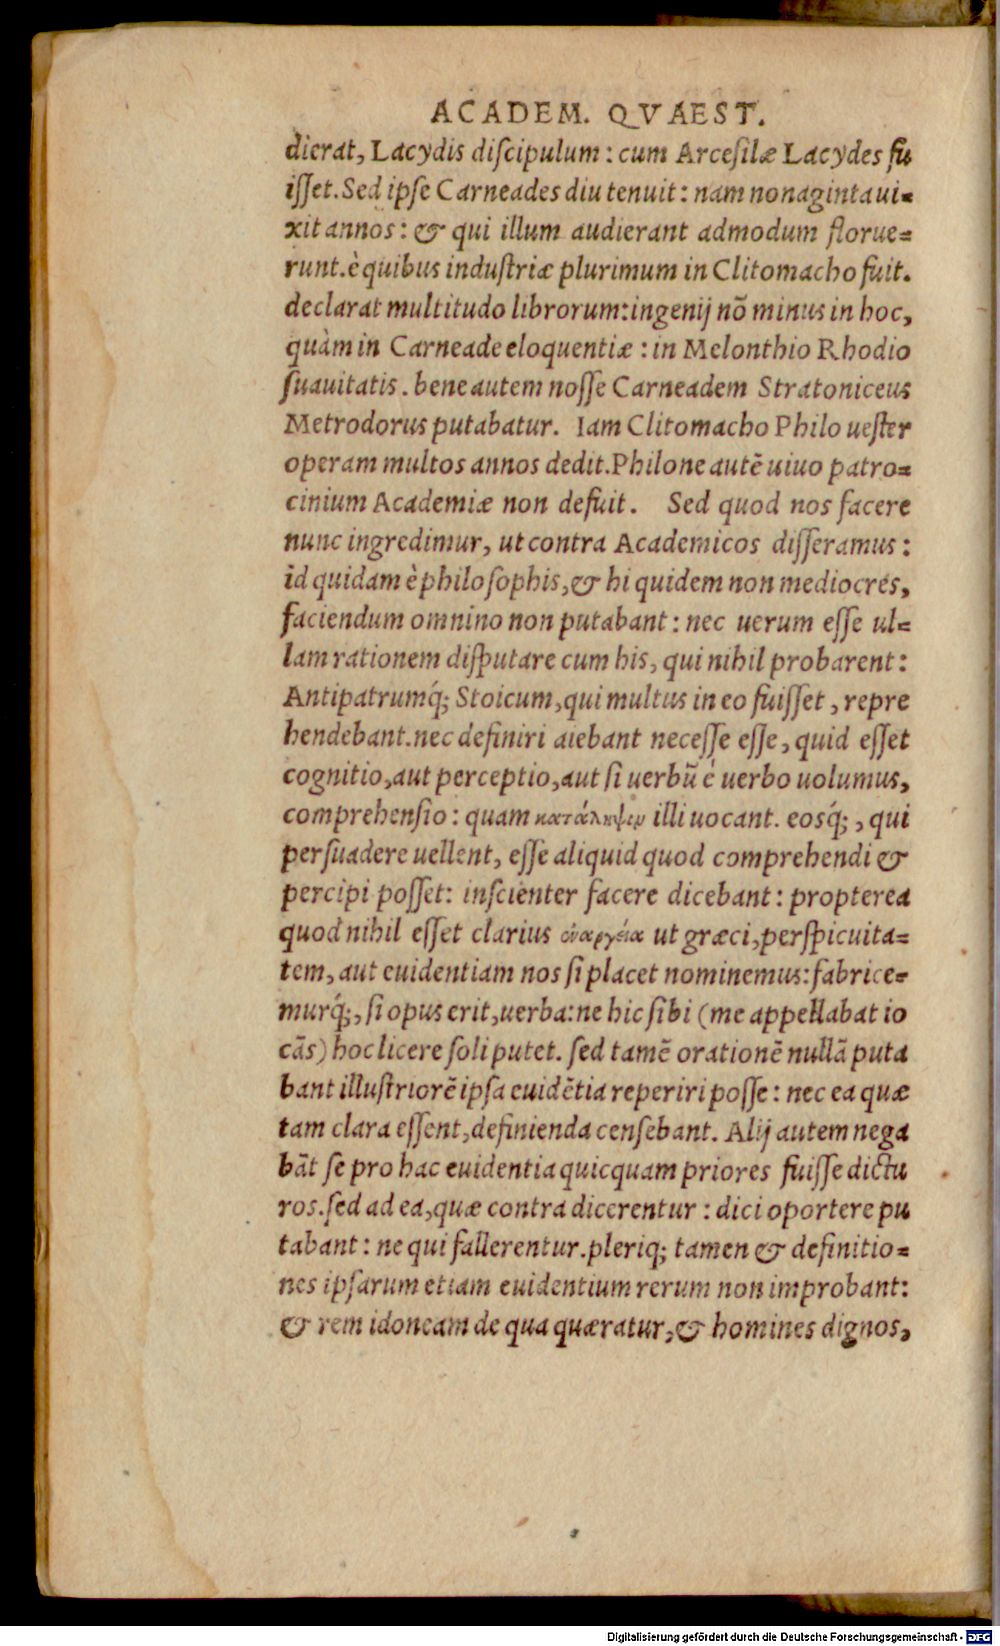 ACADEM. QVAEST.
dierat, Lacydis diſcipulum : cum Arceſilæ Lacydes fu
iſſet. Sed ipſe Carneades diu tenuit : nam nonaginta ui=
xit annos : & qui illum audierant admodum florue=
runt. è quibus induſtriæ plurimum in Clitomacho fuit.
declarat multitudo librorum: ingenij nõ minus in hoc,
quàm in Carneade eloquentiæ : in Melonthio Rhodio
ſuauitatis. bene autem noſſe Carneadem Stratoniceus
Metrodorus putabatur. Iam Clitomacho Philo ueſter
operam multos annos dedit. Philone autẽ uiuo patro=
cinium Academiæ non defuit. Sed quod nos facere
nunc ingredimur, ut contra Academicos diſſeramus :
id quidam è philoſophis, & hi quidem non mediocres,
faciendum omnino non putabant : nec uerum eſſe ul=
lam rationem diſputare cum his, qui nihil probarent :
Antipatrumq́; Stoicum, qui multus in eo fuiſſet, repre
hendebant. nec definiri aiebant neceſſe eſſe, quid eſſet
cognitio, aut perceptio, aut ſi uerbũ é uerbo uolumus,
comprehenſio : quam κατάληψιν illi uocant. eosq́;, qui
perſuadere uellent, eſſe aliquid quod comprehendi &
percipi poſſet: inſcienter facere dicebant : propterea
quod nihil eſſet clarius ἐναργείᾳ ut græci, perſpicuita=
tem, aut euidentiam nos ſi placet nominemus: fabrice=
murq́;, ſi opus erit, uerba: ne hic ſibi (me appellabat io
cãs) hoc licere ſoli putet. ſed tamẽ orationẽ nullã puta
bant illuſtriorẽ ipſa euidẽtia reperiri poſſe : nec ea quæ
tam clara eſſent, definienda cenſebant. Alij autem nega
bãt ſe pro hac euidentia quicquam priores fuiſſe dictu
ros. ſed ad ea, quæ contra dicerentur : dici oportere pu
tabant : ne qui fallerentur. pleriq; tamen & definitio=
nes ipſarum etiam euidentium rerum non improbant:
& rem idoneam de qua quæratur, & homines dignos,
Digitalisierung gefördert durch die Deutsche Forschungsgemeinschaft - DFG